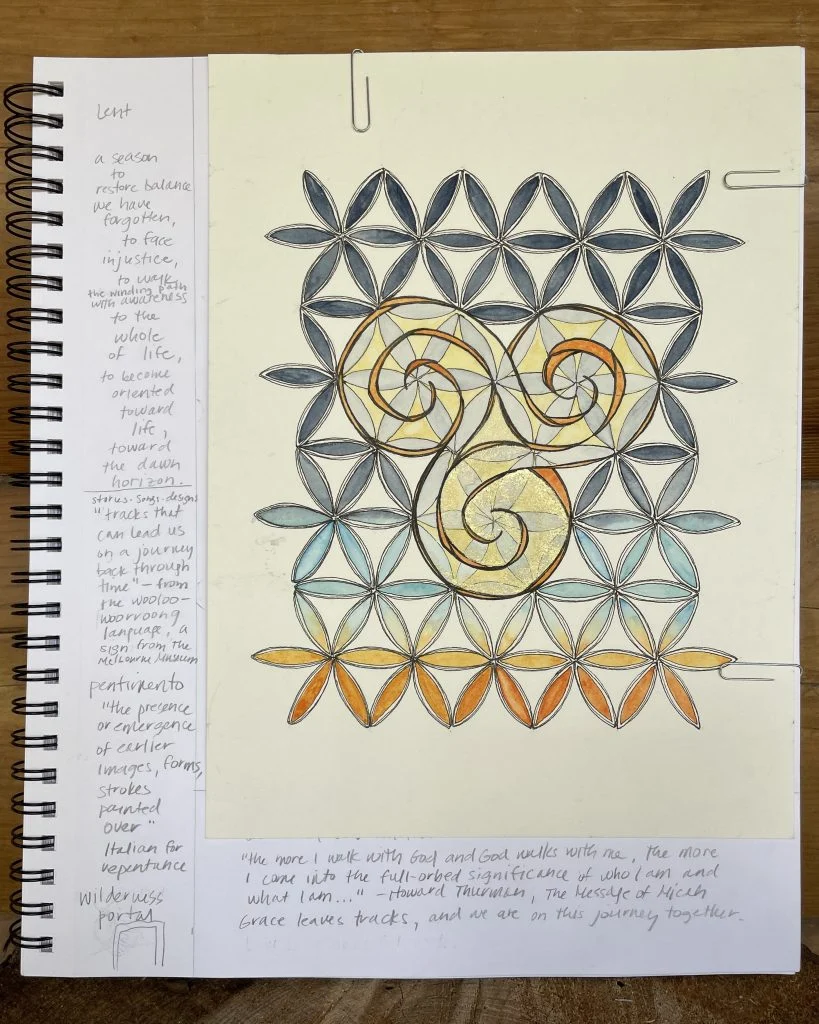 Lent
a season
to
restore balance
we have
forgotten,
to face
injustice,
to walk
the winding path
with awareness
to the
whole
of life,
to become
oriented
toward
life,
toward
the dawn
horizon.
stories. songs. designs
"tracks that
can lead us
on a journey
back through
time" - from
the wooloo-
woorroong
language, a
sign from the
Melbourne Museum
pentimento
"the presence
or emergence
of earlier
images, forms,
strokes
painted
over"
Italian for
repentance
wilderness
portal
"the more I walk with God and God walks with me, the more
I come into the full-orbed significance of who I am and
what I am..." - Howard Thurman, The Message of Micah
Grace leaves tracks, and we are on this journey together.